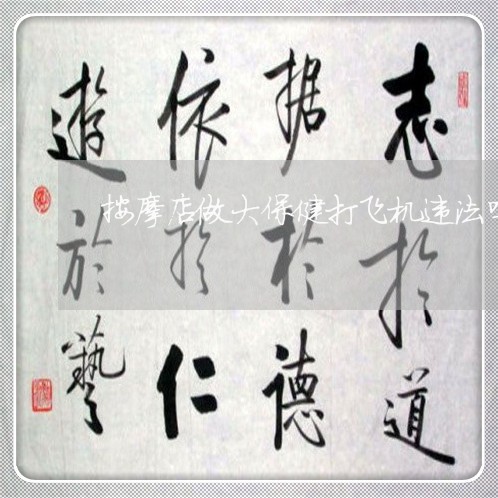 志於道
据於德
依於仁
遊於藝
按摩店做大保健打飞机违法